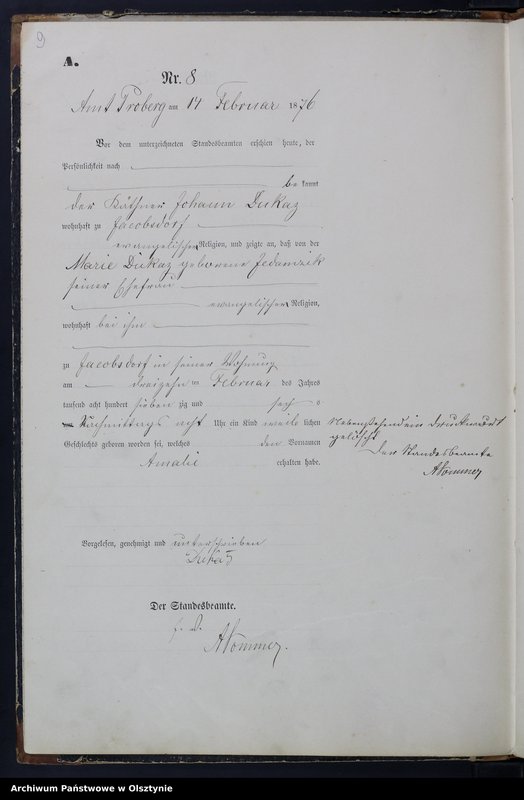 9
A.
Nr. 8
Amt Proberg am 14 Februar 1876
Vor dem unterzeichneten Standesbeamten erschien heute, der
Persönlichkeit nach
be kannt
der Käthner Johann Dukaz
wohnhaft zu Jacobsdorf
evangelischer Religion, und zeigte an, daß von der
Marie Dukaz geborene Jedamzik
seiner Ehefrau
evangelischer Religion,
wohnhaft bei ihm
zu Jacobsdorf in seiner Wohnung
am dreizehn ten Februar des Jahres
tausend acht hundert sieben zig und sechs
Nachmittags acht Uhr ein Kind weib lichen
Geschlechts geboren worden sei, welches den Vornamen
Amalie erhalten habe.
Nebenstehend ein Druckwort
gelöscht
Der Standesbeamte
Vorgelesen, genehmigt und unterschrieben
Dukaz
Der Standesbeamte.
Archiwum Państwowe w Olsztynie